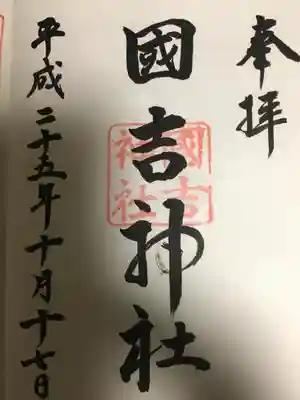 奉拝
國吉神社
國吉神社
平成二十五年十月十七日